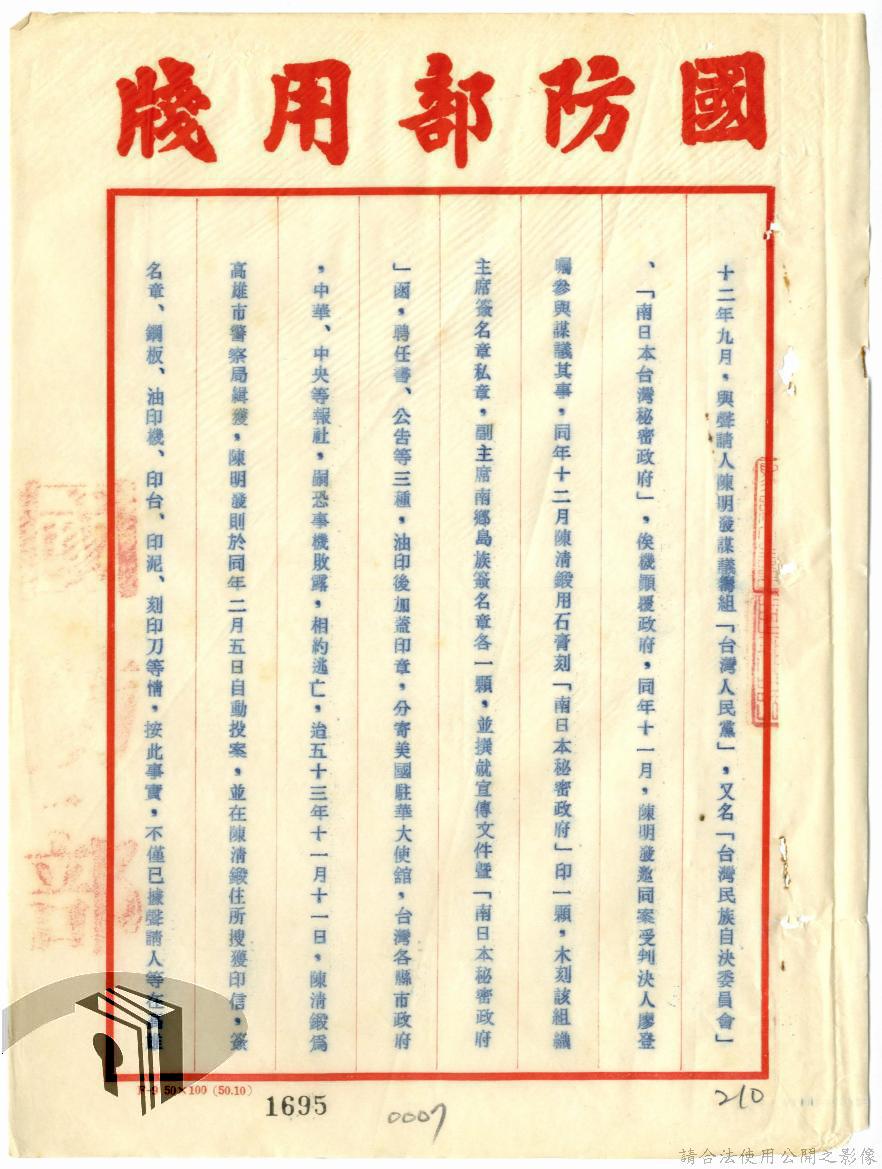 國防部用牋
十二年九月，與聲請人陳明發謀議籌組「台灣人民黨」，又名「台灣民族自決委員會」
、「南日本台灣秘密政府」，俟機顛覆政府，同年十一月，陳明發邀同案受判決人廖登
囑參與謀議其事，同年十二月陳清鍛用石膏刻「南日本秘密政府」印一顆，木刻該組織
主席簽名章私章，副主席南鄉島族簽名章各一顆，並撰就宣傳文件暨「南日本秘密政府
」函，聘任書、公告等三種，油印後加蓋印章，分寄美國駐華大使舘，台灣各縣市政府
，中華、中央等報社，嗣恐事機敗露，相約逃亡，迨五十三年十一月十一日，陳清鍛為
高雄市警察局緝獲，陳明發則於同年二月五日自動投案，並在陳清鍛住所搜獲印信，簽
名章、鋼板、油印機、印台、印泥、刻印刀等情，按此事實，不僅已據聲請人等在
50×100 (50.10)
1695
0007
210
請合法使用公開之影像